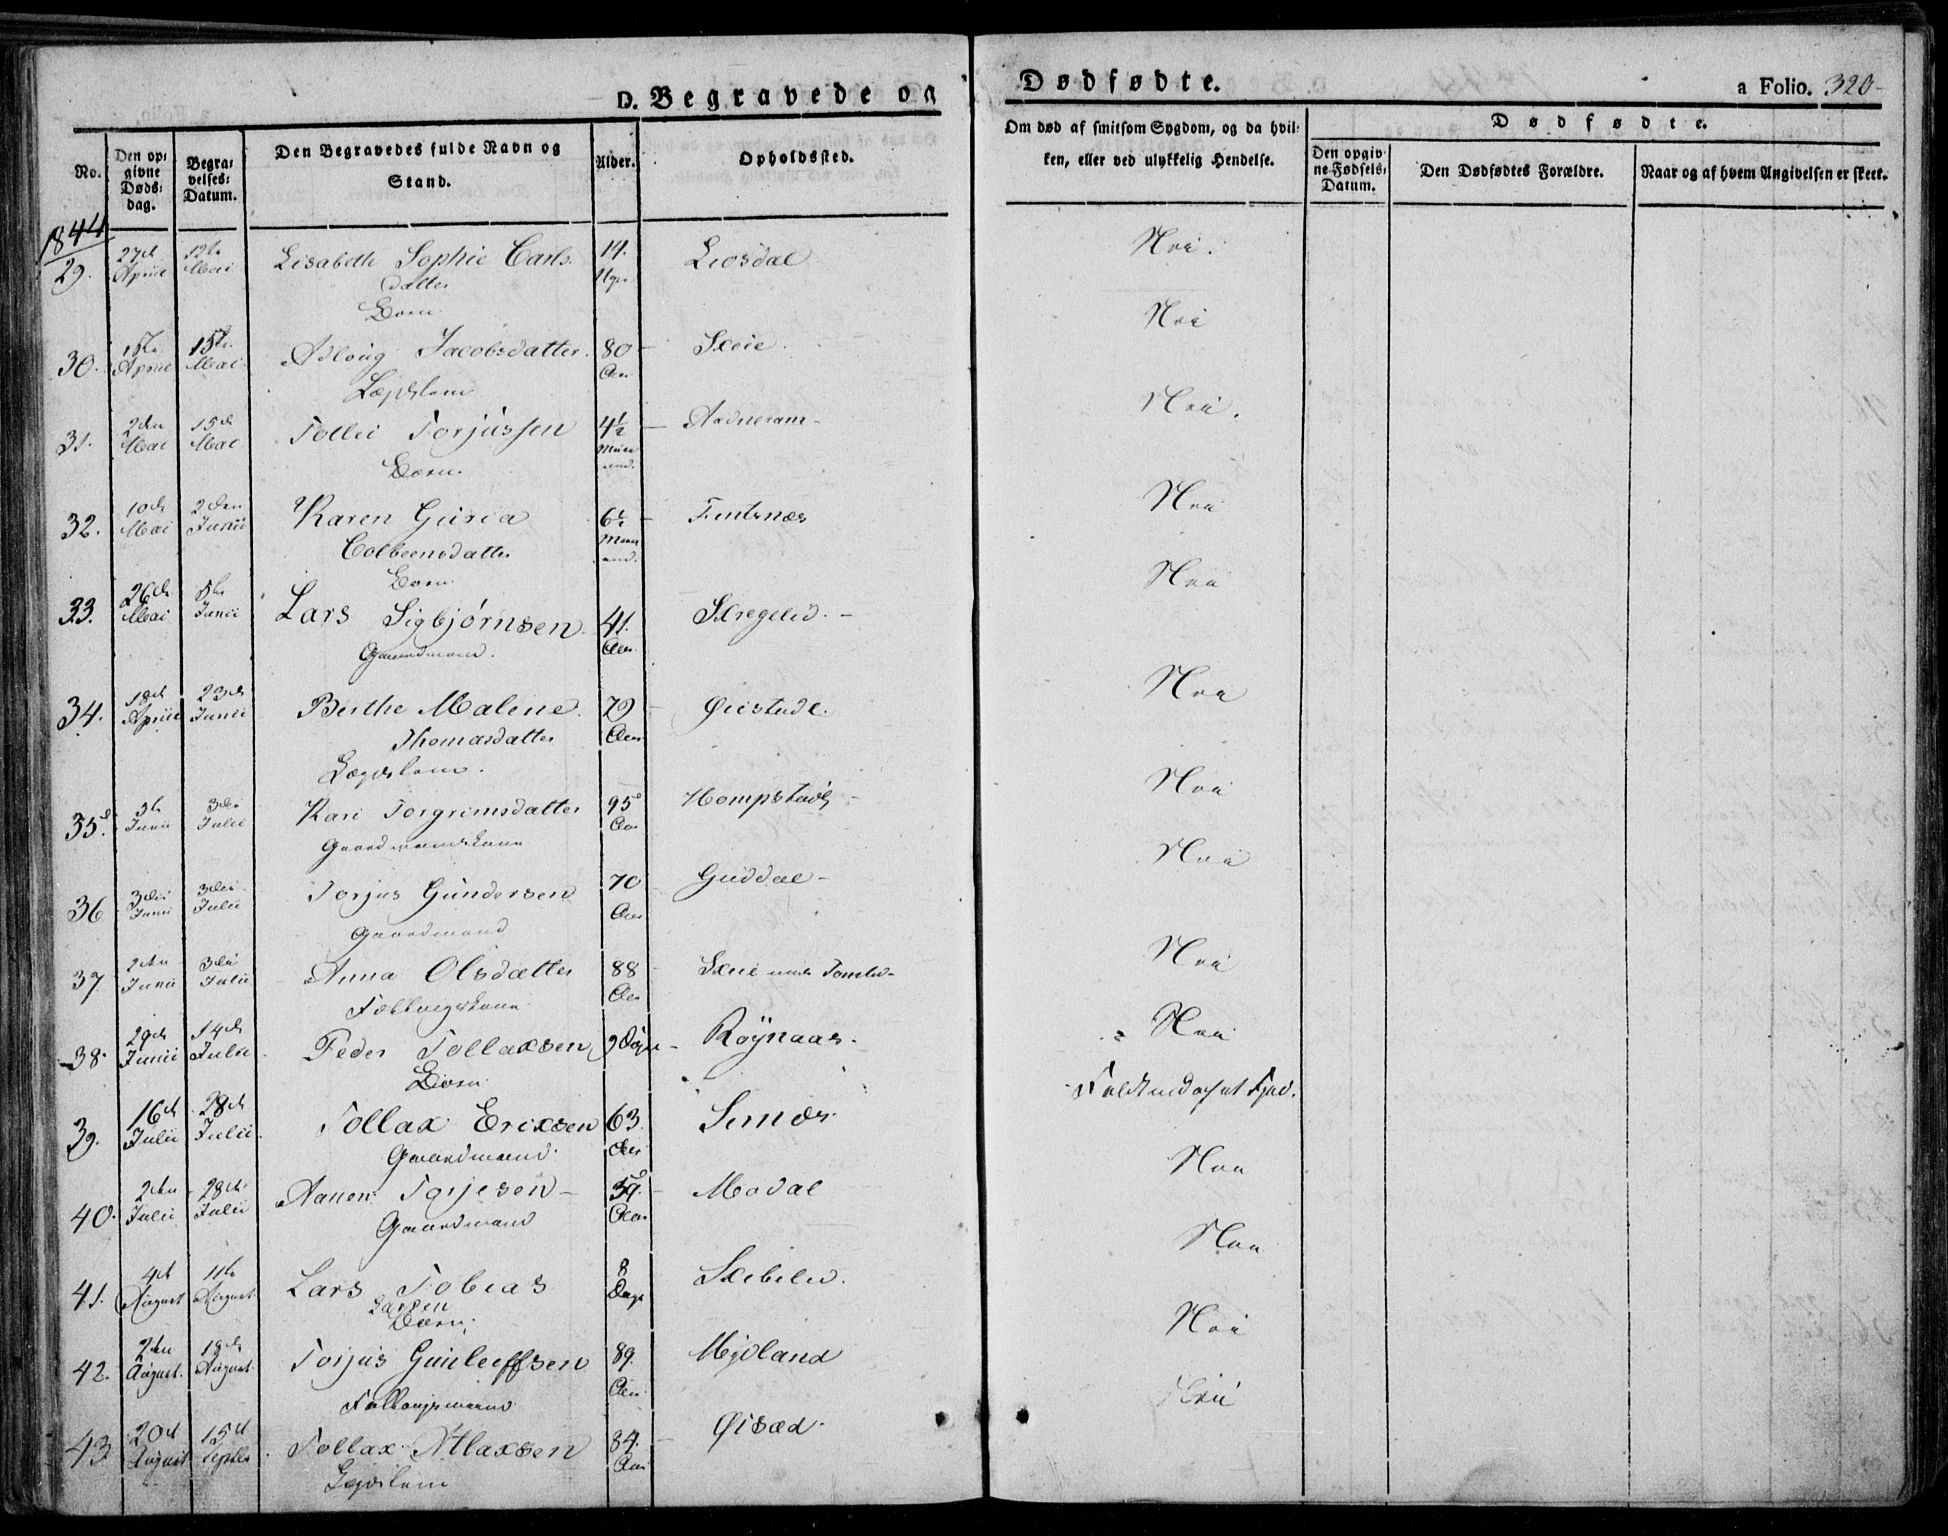 D. Begravede og
Dødfødte.
a Folio. 320
No.
Den opgivne Dødsdag.
Begravelses-Datum.
Den Begravedes fulde Navn og Stand.
Alder.
Opholdssted.
Om død af smitsom Sygdom, og da hvilken, eller ved ulykkelig Hendelse.
Dødfødte.
Den opgivne Fødsels-Datum.
Den Dødfødtes Forældre.
Naar og af hvem Angivelsen er skeet.
1844
29. 27de April 12te Mai Lisabeth Sophie Carls datter 14. Uger Liosdal Nei.
Barn
30. April 15te Mai Jacobsdatter 80 Aar Skeie. Nei
Lægdslem
31. 2den Mai 15de Mai Tollei Torjussen 4½ Maaned. Aadneram Nei.
Barn.
32. 10de Mai 2den Junii Karen Guria 6½ Maaned. Fintsnæs Nei
Colbeensdatter
Barn
33. 26de Mai Junii Lars Sigbjørnsen 41. Aar Skregelid. Nei
Gaardmand.
34. 18de April 23de Junii Berthe Malene 79 Aar Øiestade. Nei
Thomasdatter
Lægdslem.
35. 5te Junii 3die Julii Kari Torgrimsdatter 95 Aar Hompstad Nei
Gaardmandskone
36 3die Junii 3die Julii Torjus Gundersen 70 Aar Guddal Nei
Gaardmand
37 2den Junii 3die Julii Anna Olsdatter 88 Aar Skeie Nei
Følkongskone
38. 29de Junii 14de Julii Peder Tollaksen 9 Døgn Röynaas. Nei
Barn
39. 16de Julii 28de Julii Tollax Erixsen 63. Aar Sinnæs. Faldt ned af et Fjeld.
Gaardmand.
40. 2den Julii 28de Julii Aanen Torjesen 39. Aar Modal Nei
Gaardmand
41. 4de August 11te August Lars Tobias 8 Dage Skibelid. Nei
Larsen
Barn.
42. 2den August. 18de August. Torjus Gunleiffsen 89. Aar Mydland Nei
Følkongsmand
43 20de August 15de Septbr Tollax Atlaxsen 84. Aar Øisæd. Nei
Lægdslem